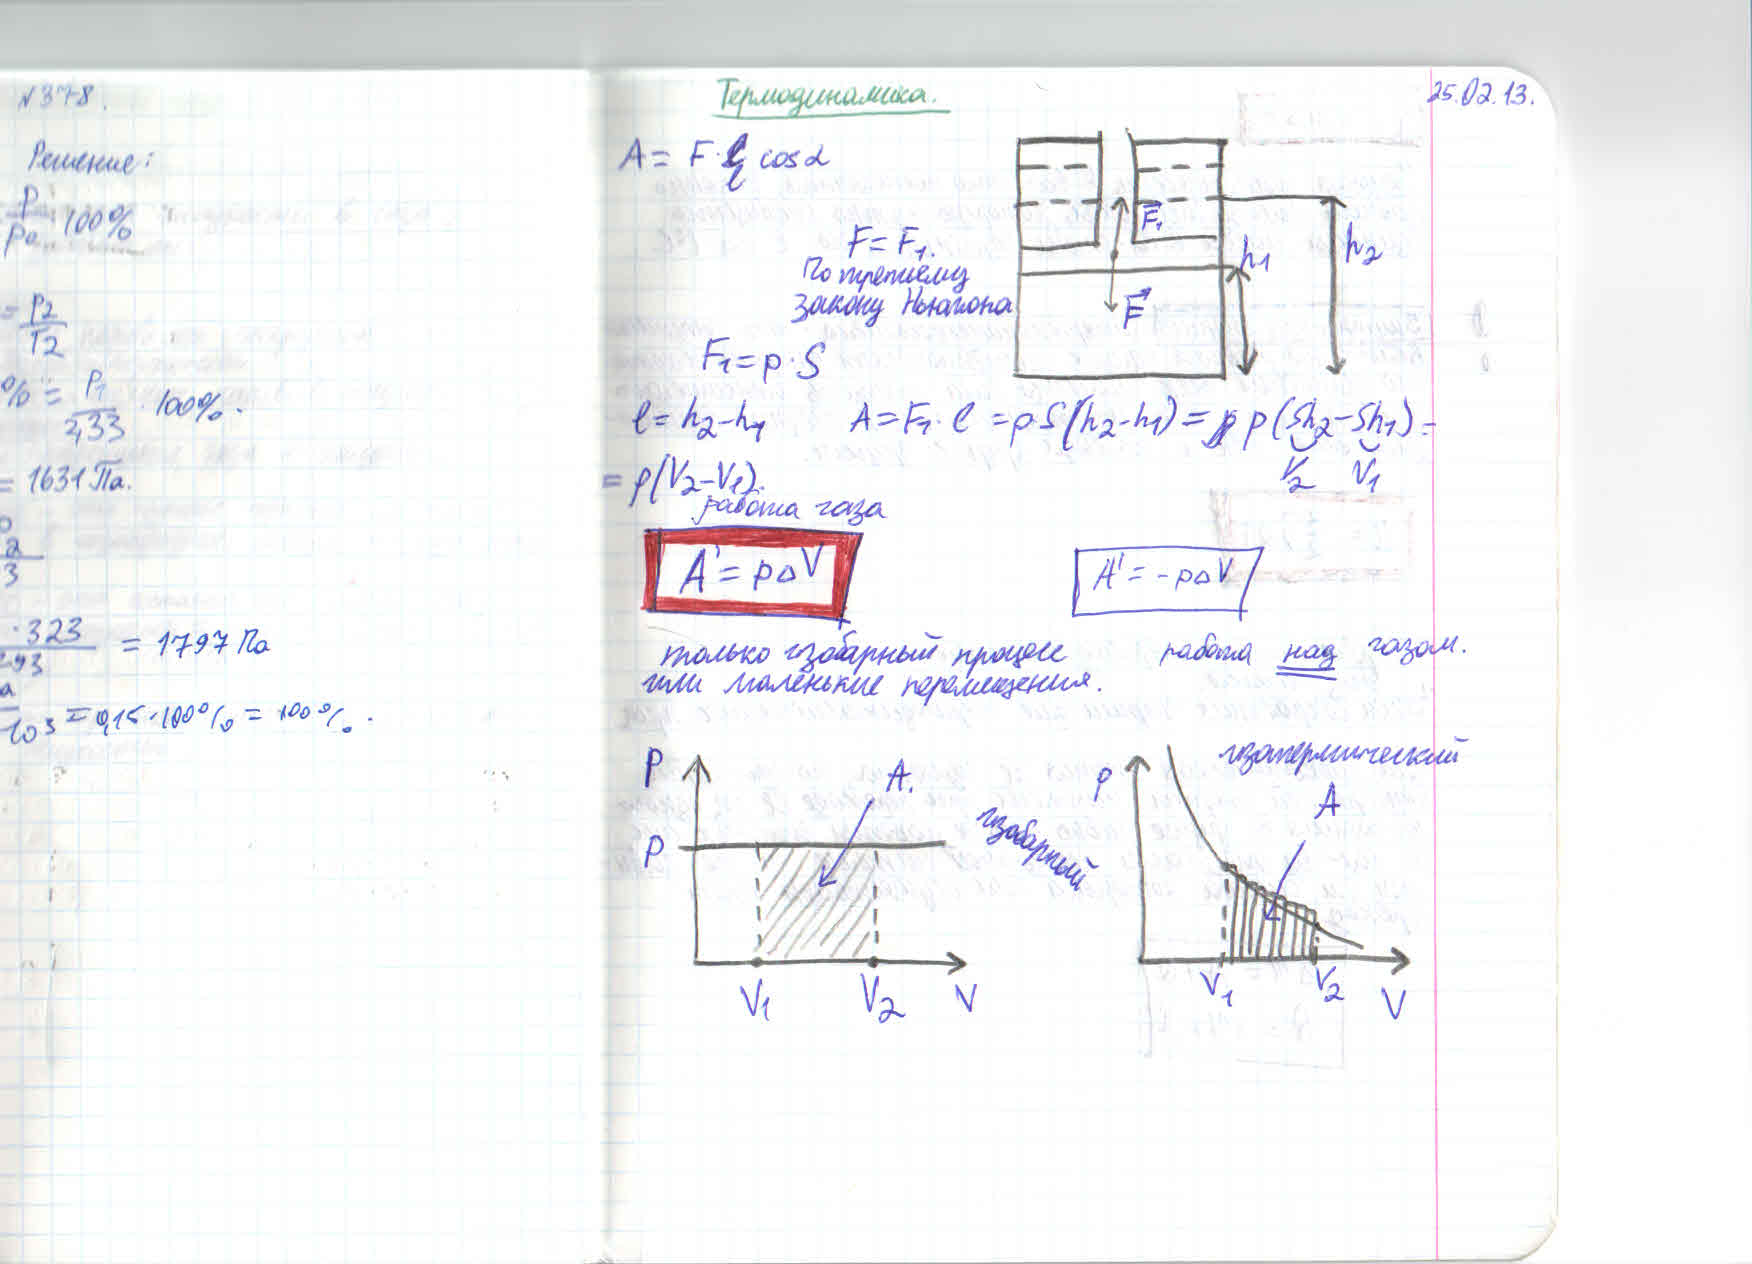 №378.
Решение:
p/p₀ 100%
= p₂/T₂
% = p₁/2,33 · 100%.
= 1631 Па.
· 323/293 = 1797 Па
10³ = 0,15·100% = 100%.
Термодинамика.
25.02.13.
A = F·l cosα
F = F₁.
По третьему
закону Ньютона
F₁
F
h₁
h₂
F₁ = p·S
l = h₂-h₁ A = F₁·l = pS(h₂-h₁) = p(Sh₂-Sh₁) =
V₂ V₁
= p(V₂-V₁).
работа газа
A' = pΔV
A' = -pΔV
только изобарный процесс
или маленькие перемещения.
работа над газом.
P
P
A.
V₁ V₂ V
изобарный
изотермический
P
A
V₁ V₂ V